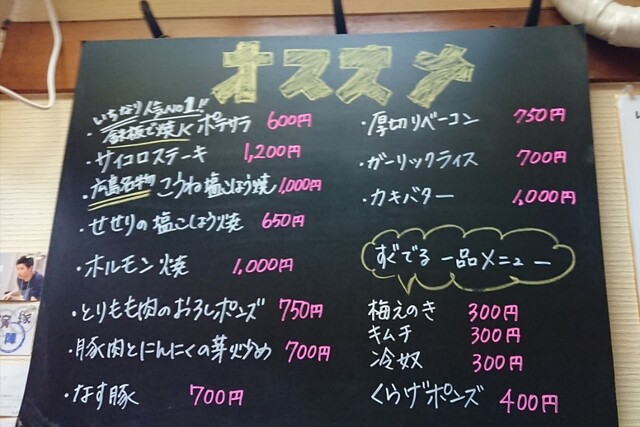 オススメ
いちなり人気No1!!
・鉄板で焼くポテサラ 600円
・サイコロステーキ 1,200円
・広島名物 こうね塩こしょう焼 1,000円
・せせりの塩こしょう焼 650円
・ホルモン焼 1,000円
・とりもも肉のおろしポンズ 750円
・豚肉とにんにくの芽炒め 700円
・なす豚 700円
・厚切りベーコン 750円
・ガーリックライス 700円
・カキバター 1,000円
すぐでる一品メニュー
梅えのき 300円
キムチ 300円
冷奴 300円
くらげポンズ 400円